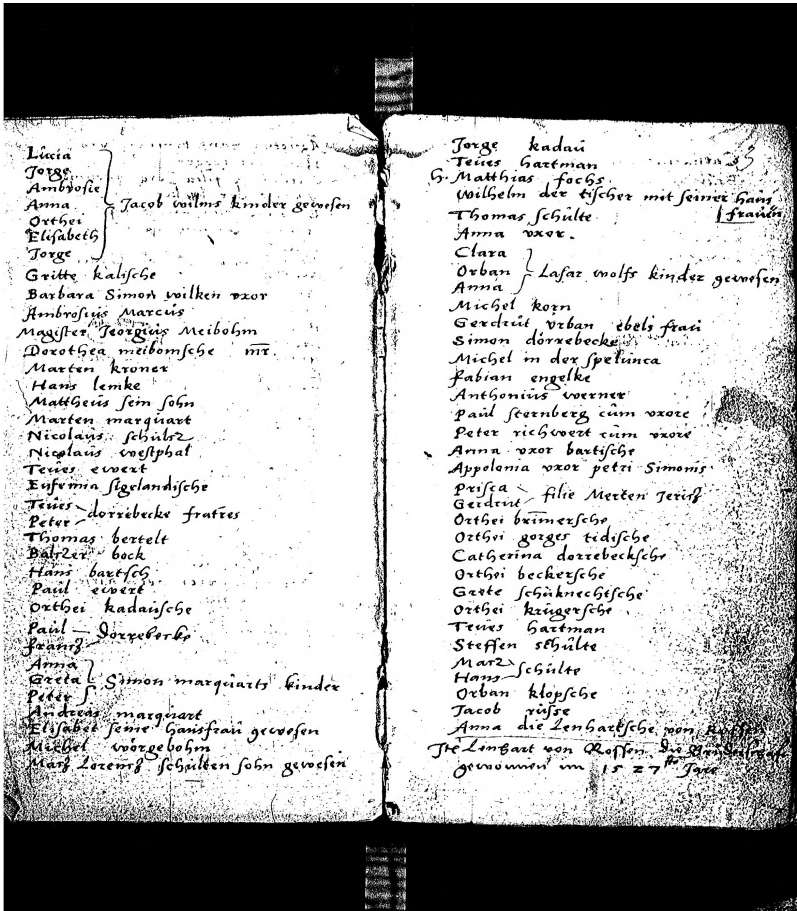 Lucia
Jorge
Ambrosie
Anna
Orthei
Elisabeth
Jorge
Jacob wilms kinder gewesen
Gritte kalische
Barbara Simon wilken vxor
Ambrosius Marcus
Magister Jeorgius Meibohm
Dorothea meibomsche mr̄.
Marten kroner
Hans lemke
Mattheus sein sohn
Marten marquart
Nicolaus schulz
Nicolaus westphal
Teues ewert
Eufemia
Teues
Peter
dorrebecke fratres
Thomas bertelt
Balzer bock
Hans bartsch
Paul ewert
Orthei kadausche
Paul
franz
Dorrebecke
Anna
Greta
Peter
Simon marquarts kinder
Andreas marquart
Elisabet seine hausfrau gewesen
Michel worgebohm
Marz Lorenz schulten sohn gewesen
Jorge kadau
Teues hartman
h. Matthias fochs
wilhelm der tischer mit seiner haus
frauen
Thomas schulte
Anna vxor.
Clara
Orban
Anna
Lasar wolfs kinder gewesen
Michel korn
Gerdrut vrban ebels frau
Simon dorrebecke
Michel in der spelunca
fabian engelke
Anthonius werner
Paul sternberg cum vxore
Peter richwert cum vxore
Anna vxor bartische
Appolonia vxor petri Simonis
Prisca
Gerdrut
filie Merten
Orthei brimersche
Orthei gorges tidische
Catherina dorrebecksche
Orthei beckersche
Grete schuknechtsche
Orthei krugersche
Teues hartman
Steffen schulte
Marz
Hans
schulte
Orban klopsche
Jacob russe
Anna die Lenhartsche von Rossen
Linhart von Rossen die
gewonnen im 1527 Jare